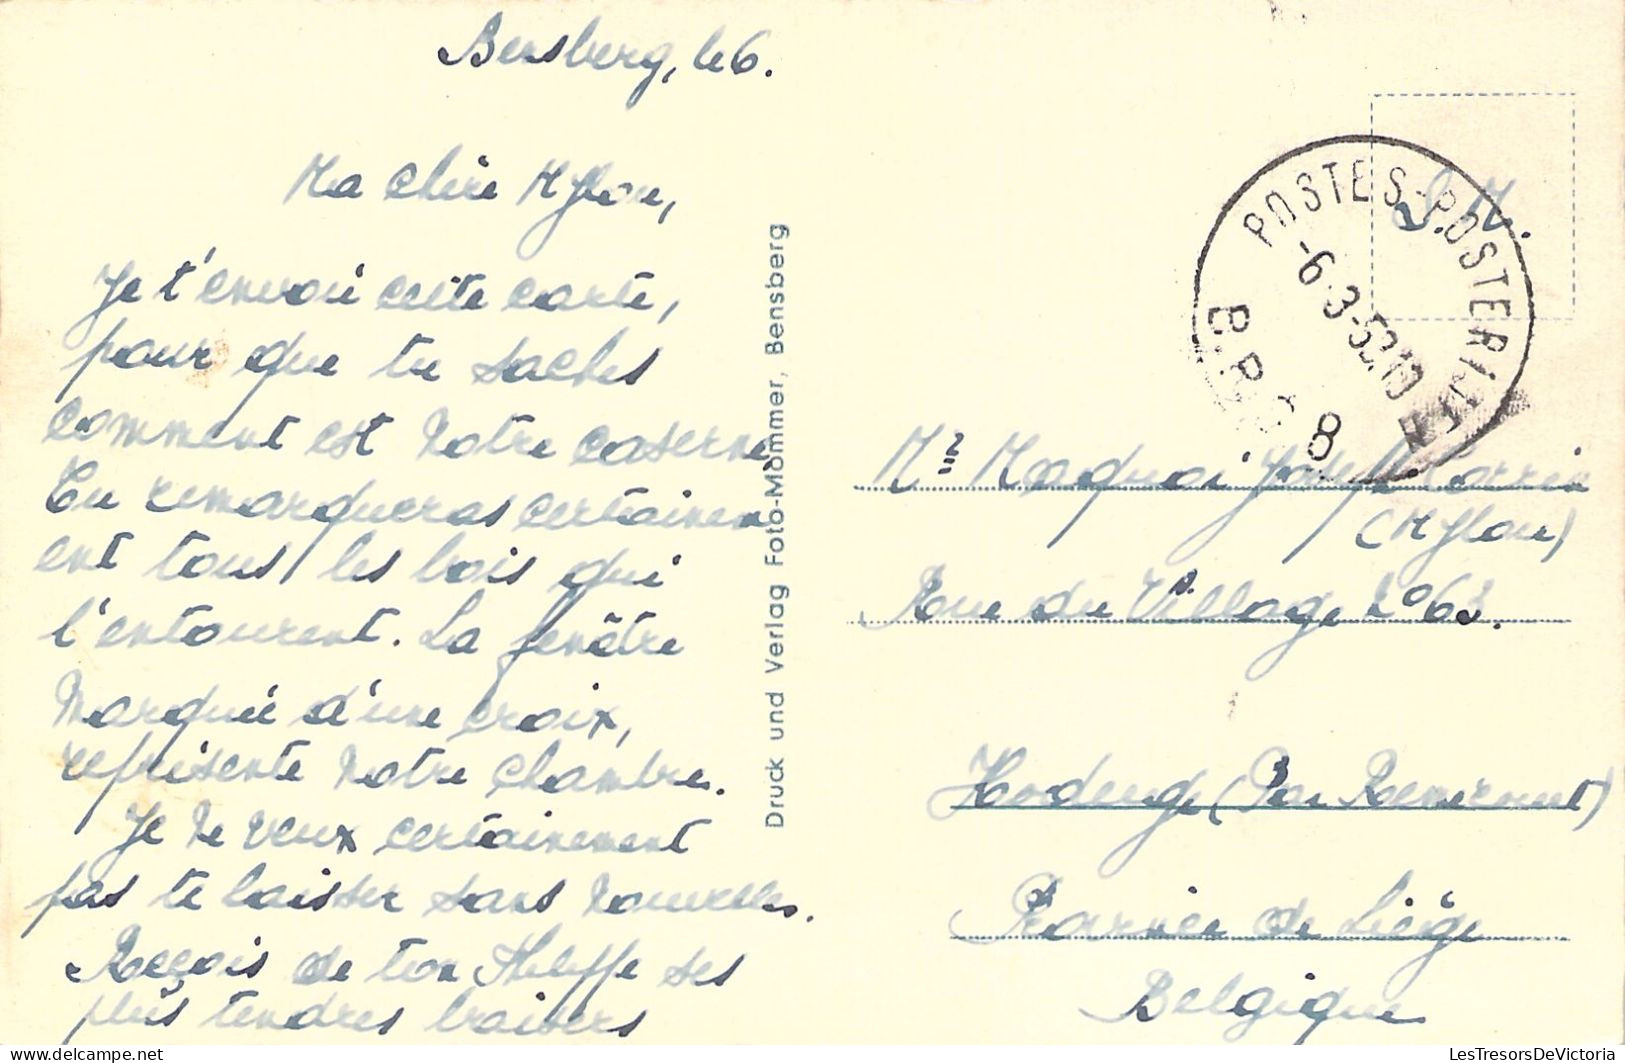 Bensberg, le 6.
Ma chère Mylou,
Je t'envoi cette carte,
pour que tu saches
comment est notre caserne
Tu remarqueras certainem
ent tous les bois qui
l'entourent. La fenêtre
marquée d'une croix,
représente notre chambre.
Je ne veux certainement
pas te laisser sans nouvelles.
Reçois de ton ses
plus tendres baisers
Druck und Verlag Foto-Mommer, Bensberg
S.M.
POSTES-POSTERIJEN
-6-3-52.10
B.P.S 8
Maquoi
(Mylou)
Rue du Village 63.
Hodeige (Par Remicourt)
Province de Liège
Belgique
LesTresorsDeVictoria